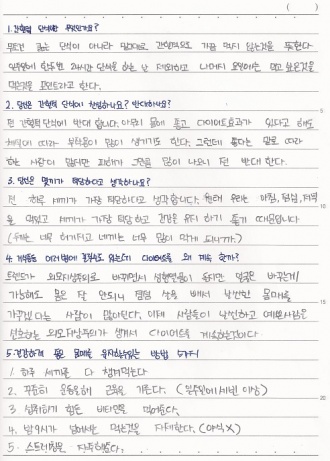 ( )
1. 간헐적 단식이란 무엇인가요?
무조건 굶는 단식이 아니라 말그대로 간헐적으로 가끔 먹지 않는것을 뜻한다.
일주일에 한두번 24시간 단식을 하는 날 제외하고 나머지 요일에는 먹고 싶은것을
먹는것을 포인트라고 한다.
2. 당신은 간헐적 단식에 찬성하나요? 반대하나요?
전 간헐적 단식에 반대 합니다. 아무리 몸에 좋고 다이어트효과가 있다고 해도
체질에 따라 부작용이 많이 생기기도 한다. 그런데 좋다는 말로 따라
하는 사람이 많다면 피해가 그만큼 많이 나오니 전 반대 한다.
3. 당신은 몇끼가 적당하다고 생각하나요?
전 하루 세끼가 가장 적당하다고 생각합니다. 현재 우리는 아침, 점심, 저녁
을 먹었고 세끼가 가장 적당하고 건강을 유지 하기 좋기 때문입니다
(두끼는 너무 허기지고 네끼는 너무 많이 먹게 되니까.)
4. 계속 이 다이어트를 왜 계속 할까?
트렌드가 외모지상주의로 바뀌면서 성형열풍이 불지만 얼굴은 바꾸는게
가능해도 몸은 잘 안되니 점점 살을 빼서 날씬한 몸매를
가꾸겠다는 사람이 많아진다. 이제 사람들이 날씬하고 예쁜사람을
선호하는 외모지상주의가 생겨서 다이어트를 계속하는것이다.
5. 건강하게 좋은 몸매를 유지하는 방법 5가지
1. 하루 세끼를 다 챙겨먹는다
2. 꾸준히 운동을해 근육을 기른다. (일주일에 세번 이상)
3. 섭취하기 힘든 비타민을 먹어둔다.
4. 밤 9시가 넘어서는 먹는것을 자제한다. (야식 X)
5. 스트레칭을 자주해준다.
5
10
15
20